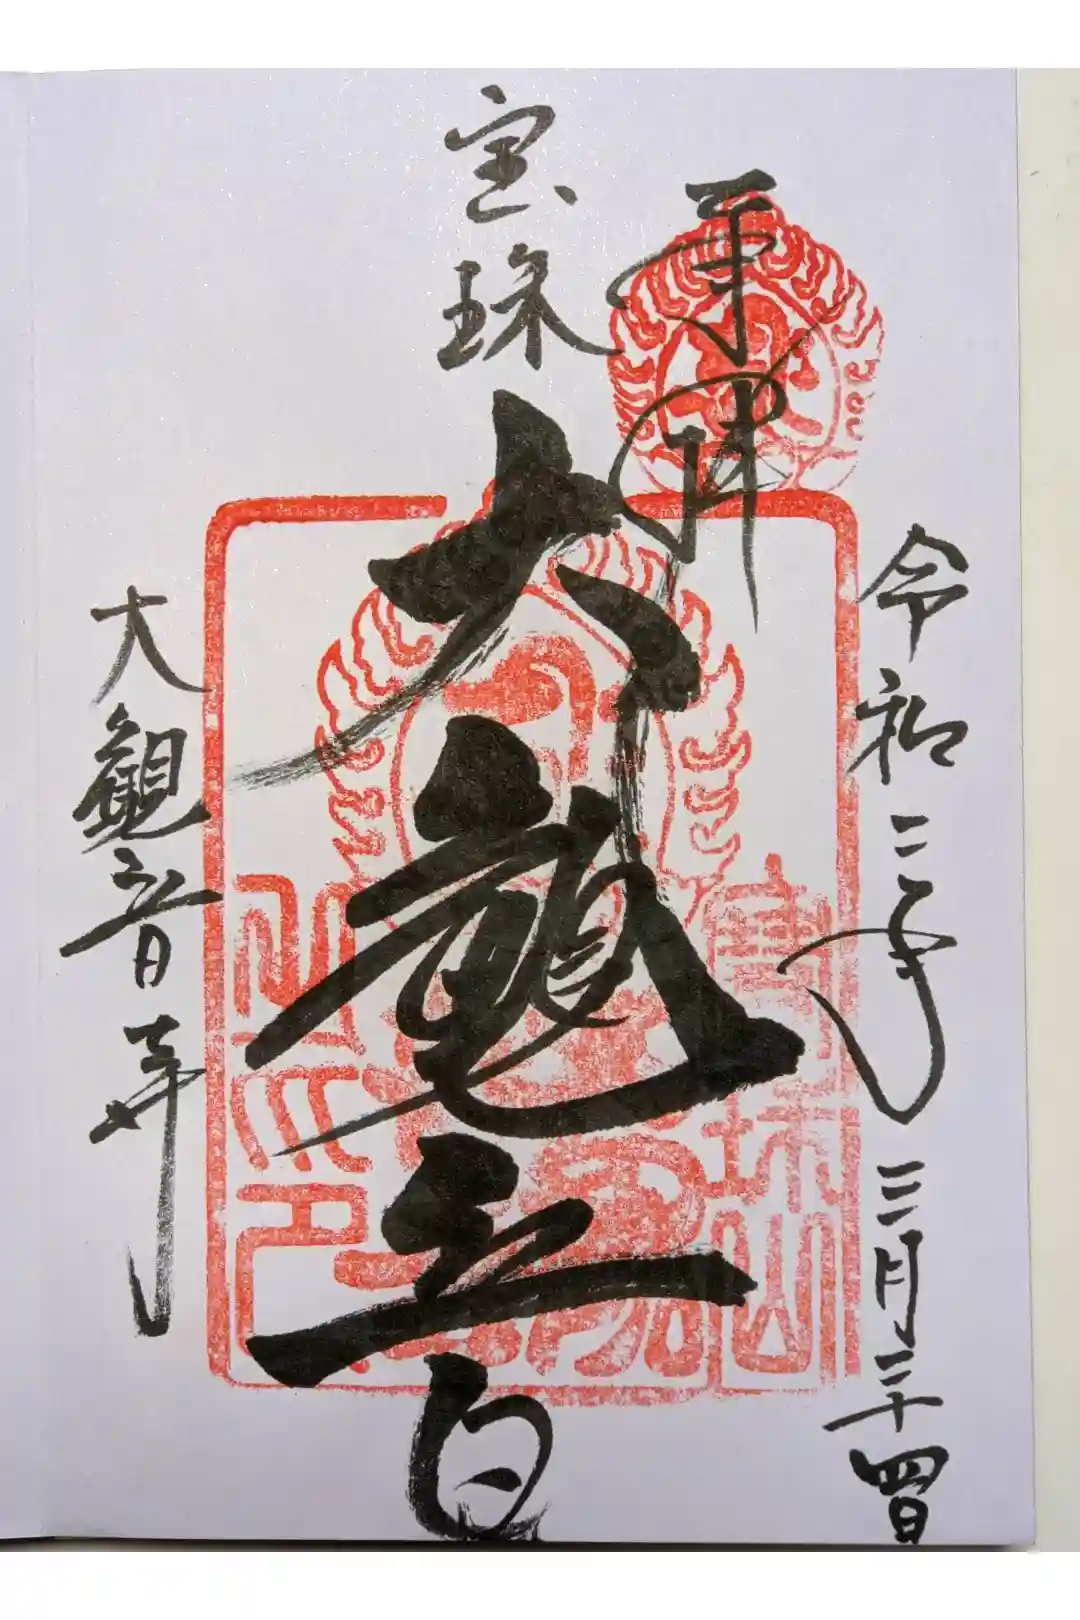 奉拝
令和二年三月二十四日
宝珠
大観音
大観音寺
寶珠山